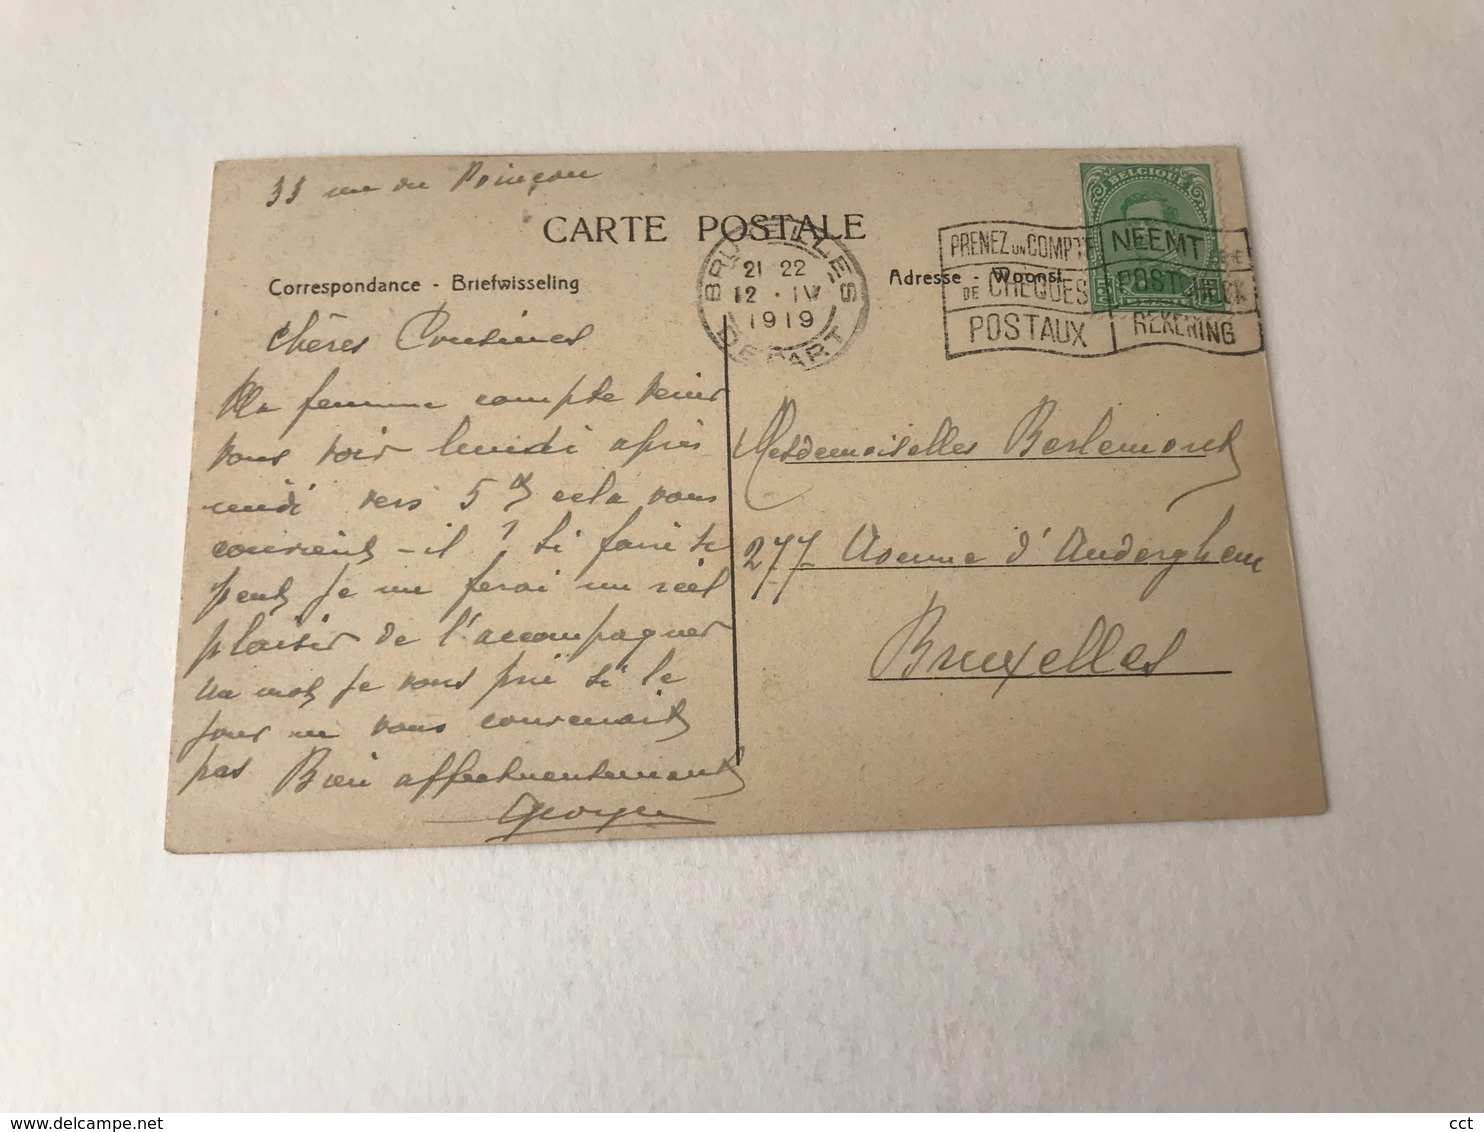 33 rue du Poinçon
CARTE POSTALE
Correspondance - Briefwisseling
Adresse - Woonst
BRUXELLES
21 22
12 · IV
1919
DEPART
BELGIQUE
PRENEZ UN COMPTE
DE CHEQUES
POSTAUX
NEEMT
POSTCHECK
REKENING
Chères Cousines
Ma femme compte venir
vous voir lundi après
midi vers 5 h cela vous
convient-il ? Si faire se
peut je me ferai un réel
plaisir de l'accompagner
Un mot je vous prie si le
jour ne vous convenait
pas Bien affectueusement
Georges
Mesdemoiselles Berlemont
277 Avenue d'Auderghem
Bruxelles
cct